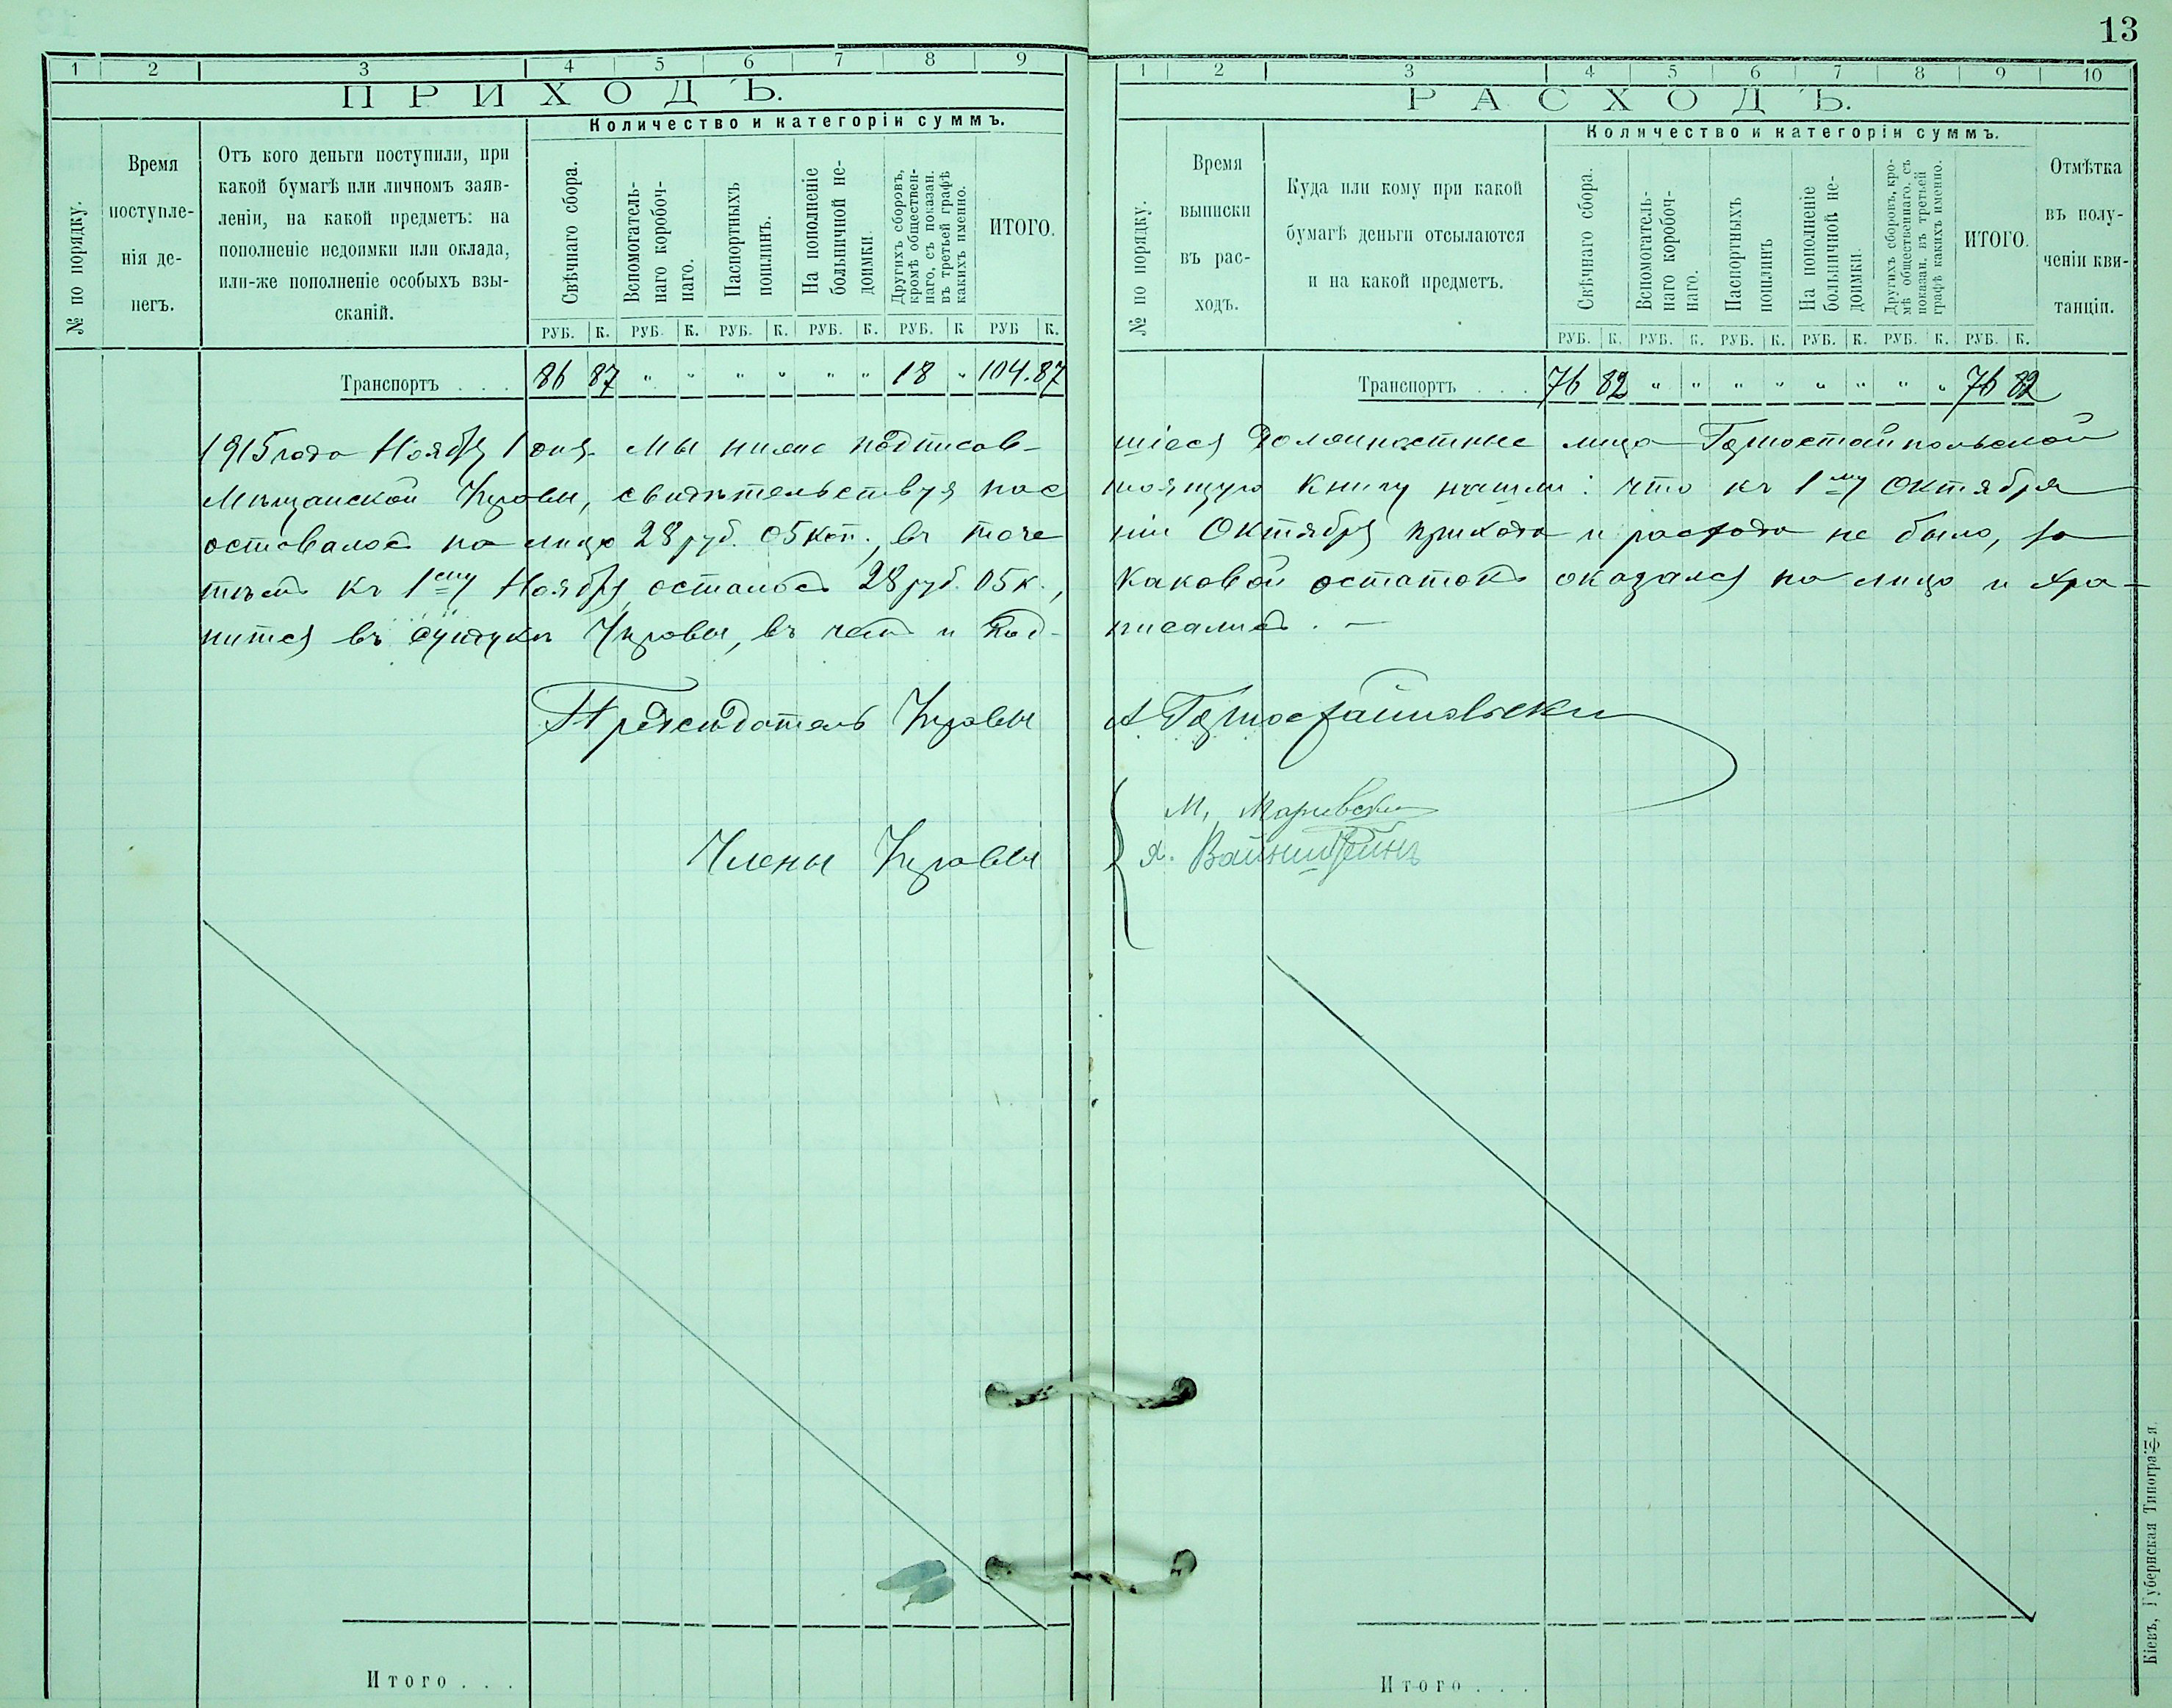 13
1 2 3 4 5 6 7 8 9
ПРИХОДЪ.
№ по порядку.
Время
поступле-
нія де-
негъ.
Отъ кого деньги поступили, при
какой бумагѣ или личномъ заяв-
леніи, на какой предметъ: на
пополненіе недоимки или оклада,
или-же пополненіе особыхъ взы-
сканій.
Количество и категоріи суммъ.
Свѣчнаго сбора.
Вспомогатель-
наго коробоч-
наго.
Паспортныхъ
пошлинъ.
На пополненіе
больничной не-
доимки.
Другихъ сборовъ,
кромѣ обществен-
наго, съ показан.
въ третьей графѣ
какихъ именно.
ИТОГО.
РУБ. К. РУБ. К. РУБ. К. РУБ. К. РУБ. К РУБ К.
Транспортъ . . . 86 87 " " " " " " 18 " 104.87
1 2 3 4 5 6 7 8 9 10
РАСХОДЪ.
№ по порядку.
Время
выписки
въ рас-
ходъ.
Куда или кому при какой
бумагѣ деньги отсылаются
и на какой предметъ.
Количество и категоріи суммъ.
Свѣчнаго сбора.
Вспомогатель-
наго коробоч-
наго.
Паспортныхъ
пошлинъ
На пополненіе
больничной не-
доимки.
Другихъ сборовъ, кро-
мѣ общественнаго, съ
показан. въ третьей
графѣ какихъ именно.
ИТОГО.
Отмѣтка
въ полу-
ченіи кви-
танціи.
РУБ. К. РУБ. К. РУБ. К. РУБ. К. РУБ. К. РУБ. К.
Транспортъ . . . 76 82 " " " " " " " " 76 82
1915 года Ноября 1 дня. Мы ниже подписав-шіеся Должностные лица Горностайпольской
Мѣщанской Управы, свидѣтельствуя нас тоящую книгу нашли: что къ 1му Октября
оставалось на лицо 28 руб. 05 коп., въ тече ніи Октября прихода и расхода не было, за
тѣмъ къ 1ему Ноября осталось 28 руб. 05 к., каковой остатокъ оказался на лицо и хра-
нится въ сундукѣ Управы, въ чемъ и Под-писались. —
Предсѣдатель Управы А Горностайпольски
Члены Управы
М, Маривски
Я. Вайнштейнъ
Итого . . .
Итого . . .
Кіевъ, Губернская Типографія.